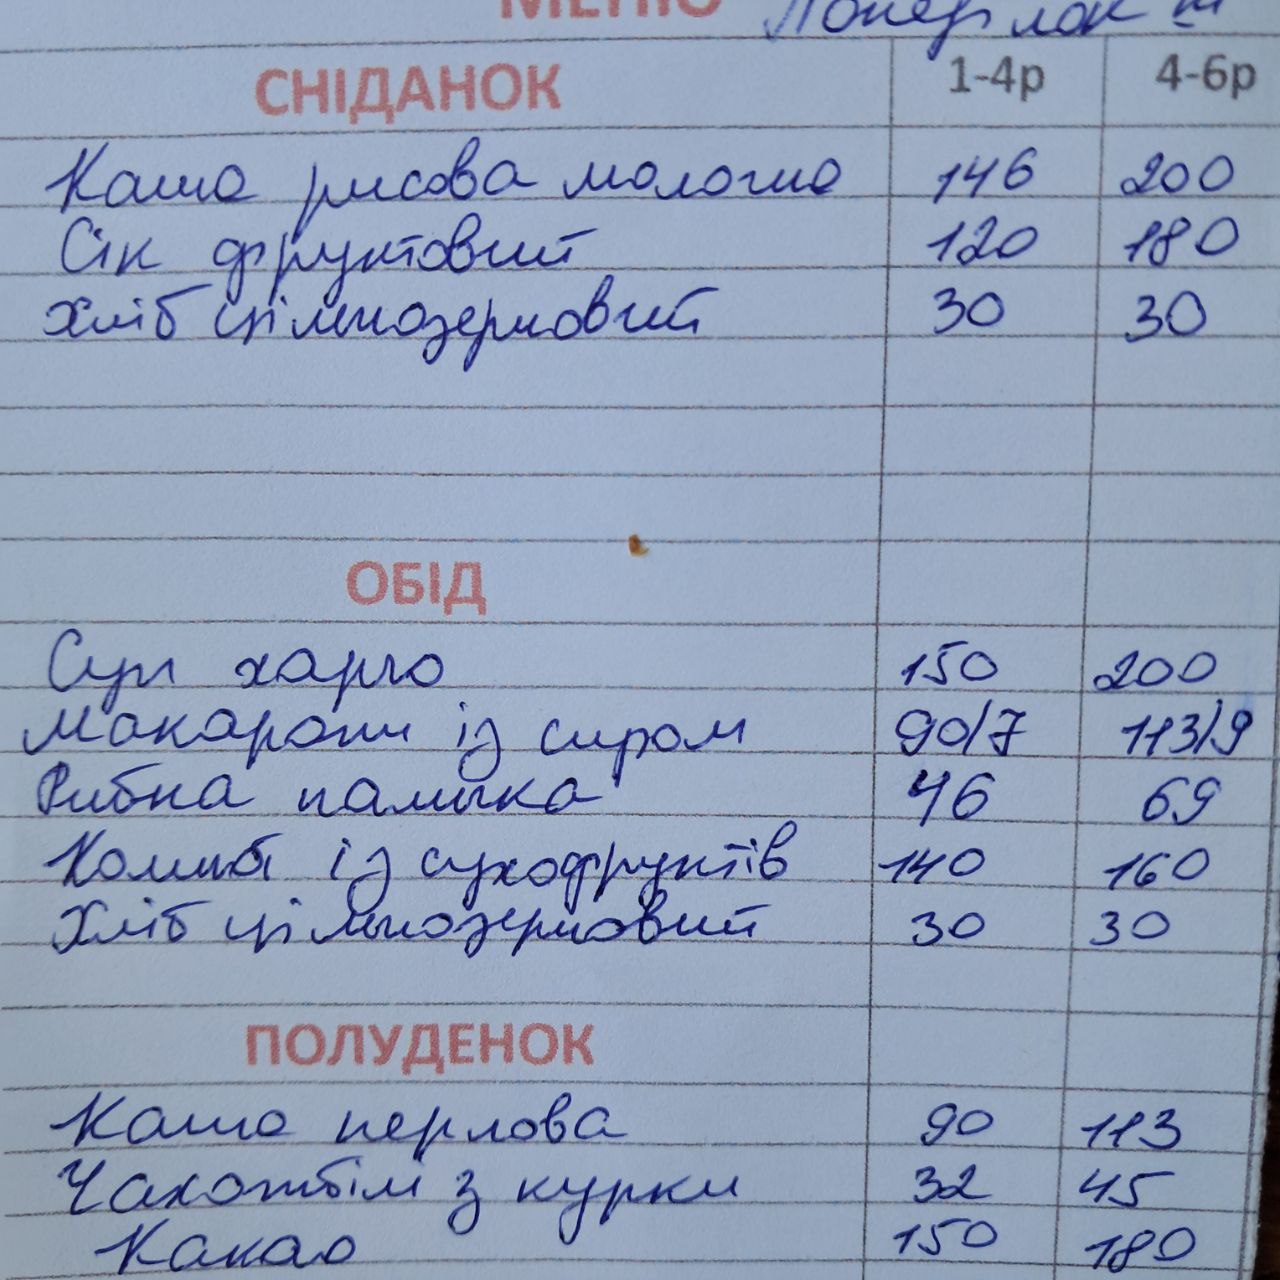 МЕНЮ Понеділок III
СНІДАНОК 1-4р 4-6р
Каша рисова молочна 146 200
Сік фруктовий 120 180
Хліб цільнозерновий 30 30
ОБІД
Суп харчо 150 200
Макарони із сиром 90/7 113/9
Рибна паличка 46 69
Компот із сухофруктів 140 160
Хліб цільнозерновий 30 30
ПОЛУДЕНОК
Каша перлова 90 113
Чахохбілі з курки 32 45
Какао 150 180